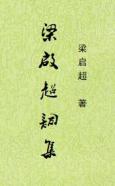 梁启超 著
梁啟超詞集